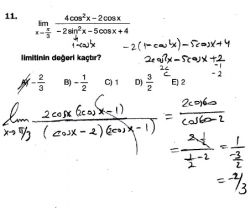 11. lim x→π/3 (4cos²x – 2cosx) / (–2sin²x – 5cosx + 4)
1-cos²x
-2(1-cos²x) - 5cosx + 4
2cos²x - 5cosx + 2
2c -1
c -2
limitinin değeri kaçtır?
A) -2/3 B) -1/2 C) 1 D) 3/2 E) 2
lim x→π/3 2cosx (2cosx - 1) / (cosx - 2)(2cosx - 1) = 2cos60 / cos60-2
= 2·1/2 / 1/2 - 2 = 1 / -3/2
= -2/3